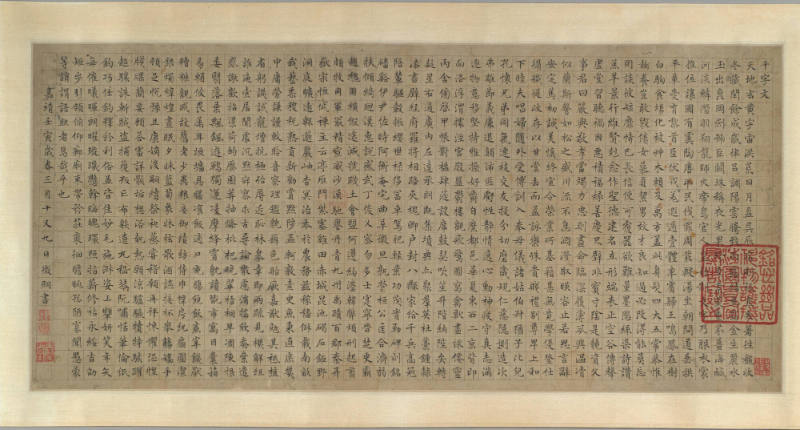 千字文
天地玄黃宇宙洪荒日月盈昃辰宿列張寒來暑往秋收
冬藏閏餘成歲律呂調陽雲騰致雨露結為霜金生麗水
玉出崑岡劍號巨闕珠稱夜光菓珍李柰菜重芥薑海鹹
河淡鱗潛羽翔龍師火帝鳥官人皇始制文字乃服衣裳
推位讓國有虞陶唐弔民伐罪周發殷湯坐朝問道垂拱
平章愛育黎首臣伏戎羌遐邇壹體率賓歸王鳴鳳在樹
白駒食場化被草木賴及萬方蓋此身髮四大五常恭惟
鞠養豈敢毀傷女慕貞絜男效才良知過必改得能莫忘
罔談彼短靡恃己長信使可覆器欲難量墨悲絲染詩讚
羔羊景行維賢克念作聖德建名立形端表正空谷傳聲
虛堂習聽禍因惡積福緣善慶尺璧非寶寸陰是競資父
事君曰嚴與敬孝當竭力忠則盡命臨深履薄夙興溫凊
似蘭斯馨如松之盛川流不息淵澄取映容止若思言辭
安定篤初誠美慎終宜令榮業所基藉甚無竟學優登仕
攝職從政存以甘棠去而益詠樂殊貴賤禮別尊卑上和
下睦夫唱婦隨外受傅訓入奉母儀諸姑伯叔猶子比兒
孔懷兄弟同氣連枝交友投分切磨箴規仁慈隱惻造次
弗離節義廉退顛沛匪虧性靜情逸心動神疲守真志滿
逐物意移堅持雅操好爵自縻都邑華夏東西二京背邙
面洛浮渭據涇宮殿盤鬱樓觀飛驚圖寫禽獸畫彩仙靈
丙舍傍啟甲帳對楹肆筵設席鼓瑟吹笙升階納陛弁轉
疑星右通廣內左達承明既集墳典亦聚群英杜稾鍾隸
漆書壁經府羅將相路俠槐卿戶封八縣家給千兵高冠
陪輦驅轂振纓世祿侈富車駕肥輕策功茂實勒碑刻銘
磻谿伊尹佐時阿衡奄宅曲阜微旦孰營桓公匡合濟弱
扶傾綺迴漢惠說感武丁俊乂密勿多士寔寧晉楚更霸
趙魏困橫假途滅虢踐土會盟何遵約法韓弊煩刑起翦
頗牧用軍最精宣威沙漠馳譽丹青九州禹跡百郡秦并
嶽宗恒岱禪主云亭雁門紫塞雞田赤城昆池碣石鉅野
洞庭曠遠綿邈巖岫杳冥治本於農務茲稼穡俶載南畝
我藝黍稷稅熟貢新勸賞黜陟孟軻敦素史魚秉直庶幾
中庸勞謙謹敕聆音察理鑑貌辨色貽厥嘉猷勉其祗植
省躬譏誡寵增抗極殆辱近恥林皋幸即兩疏見機解組
誰逼索居閒處沉默寂寥求古尋論散慮逍遙欣奏累遣
慼謝歡招渠荷的歷園莽抽條枇杷晚翠梧桐早凋陳根
委翳落葉飄颻遊鵾獨運凌摩絳霄耽讀翫市寓目囊箱
易輶攸畏屬耳垣牆具膳餐飯適口充腸飽飫烹宰飢厭
糟糠親戚故舊老少異糧妾御績紡侍巾帷房紈扇圓潔
銀燭煒煌晝眠夕寐藍筍象床絃歌酒讌接杯舉觴矯手
頓足悅豫且康嫡後嗣續祭祀烝嘗稽顙再拜悚懼恐惶
牋牒簡要顧答審詳骸垢想浴執熱願涼驢騾犢特駭躍
超驤誅斬賊盜捕獲叛亡布射遼丸嵇琴阮嘯恬筆倫紙
鈞巧任釣釋紛利俗並皆佳妙毛施淑姿工顰妍笑年矢
每催曦暉朗曜璇璣懸斡晦魄環照指薪修祜永綏吉劭
矩步引領俯仰廊廟束帶矜莊徘徊瞻眺孤陋寡聞愚蒙
等誚謂語助者焉哉乎也
嘉靖壬寅歲春三月十又九日徵明書